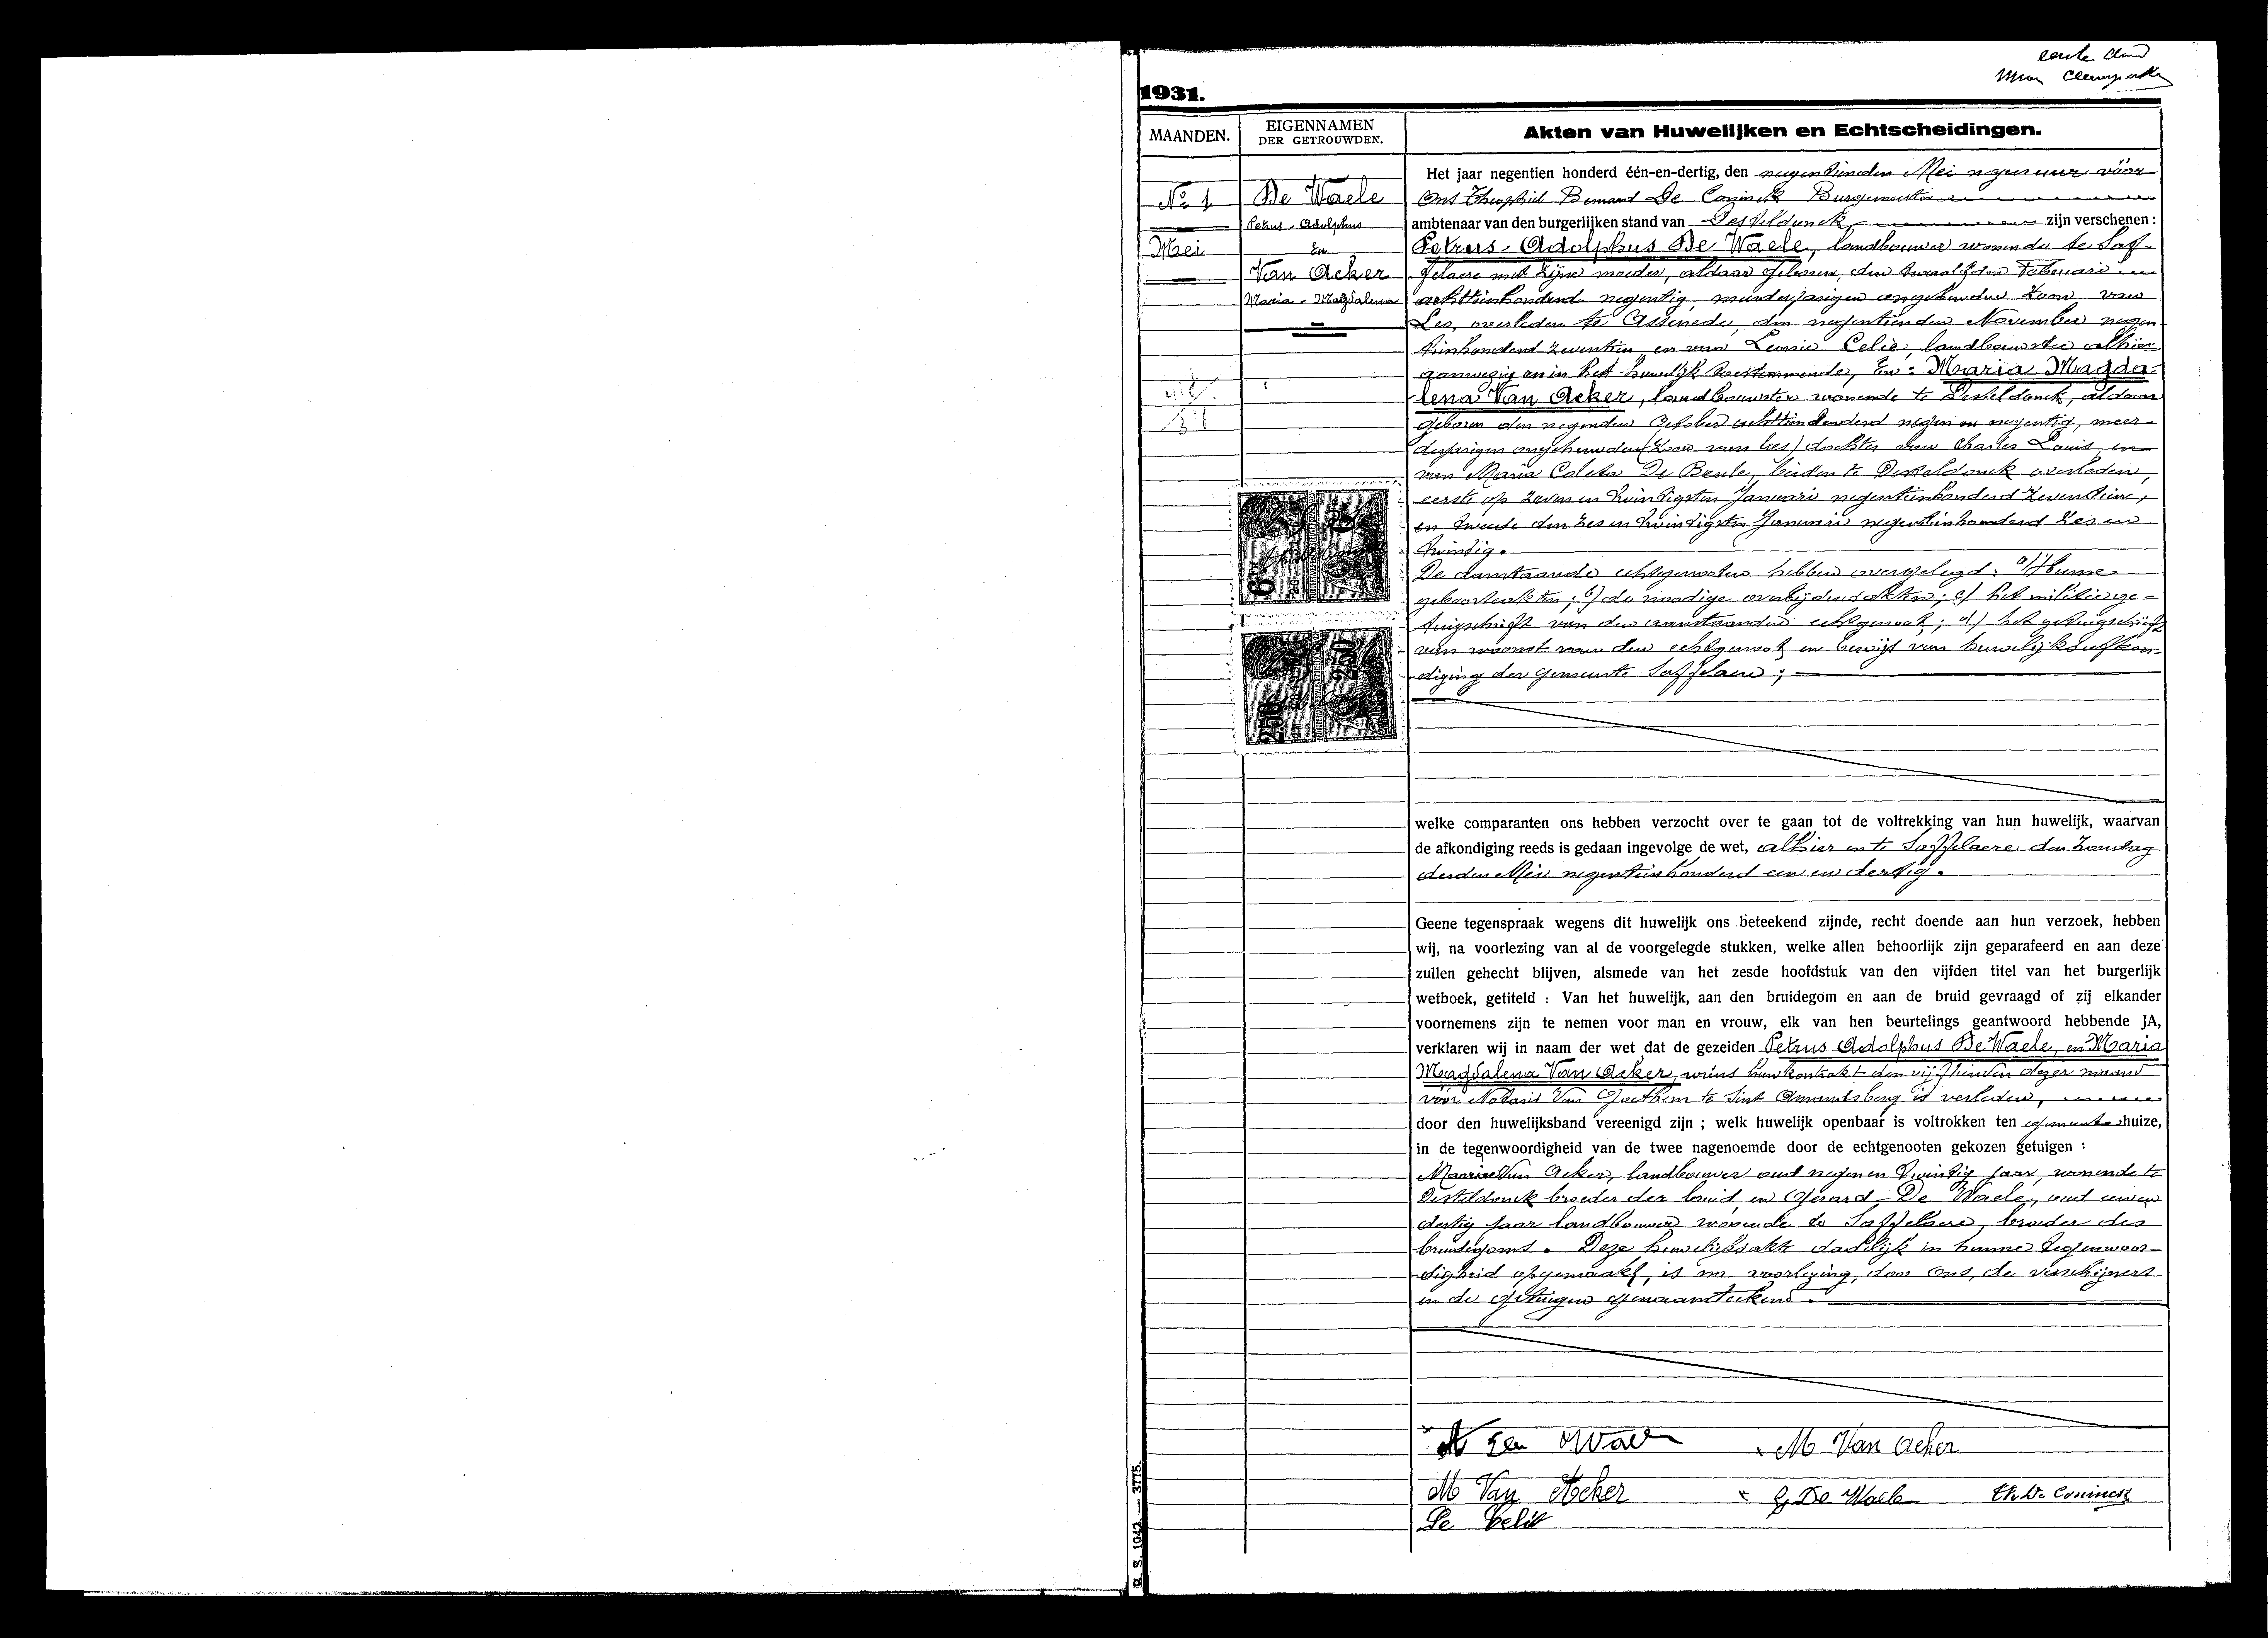 1931.
MAANDEN.
EIGENNAMEN
DER GETROUWDEN.
Akten van Huwelijken en Echtscheidingen.
No 1
Mei
De Waele
Petrus-Adolphus
En
Van Acker
Maria-Magdalena
6 Fr
6 Fr
2.50
2.50
Het jaar negentien honderd één-en-dertig, den negentienden Mei negen uur, vóór
Ons Theophiel Bernard De Coninck Burgemeester
ambtenaar van den burgerlijken stand van Desteldonck, zijn verschenen :
Petrus-Adolphus De Waele, landbouwer wonende te Saf-
felaere met zijne moeder, aldaar geboren, den twaalfden Februari
achttienhonderd negentig, meerderjarigen ongehuwden zoon van
Leo, overleden te Assenede, den negentienden November negen-
tienhonderd zeventien en van Leonie Celie, landbouwster alhier
aanwezig en in het huwelijk toestemmende, En: Maria Magda-
lena Van Acker, landbouwster wonende te Desteldonck, aldaar
geboren den negenden October achttienhonderd negen en negentig, meer-
derjarigen ongehuwden (zoon van lees) dochter van Charles Louis, en
van Maria Coleta De Beule, beiden te Desteldonck overleden,
eerste op zeven en twintigsten Januari negentienhonderd zeventien,
en tweede den zes en twintigsten Januari negentienhonderd zes en
twintig.
De aanstaande echtgenooten hebben overgelegd: a) Hunne
geboorteakten; b) de noodige overlijdensakten; c) het militiege-
tuigschrift van den aanstaanden echtgenoot; d) het getuigschrift
van woonst van den echtgenoot en bewijs van huwelijksafkon-
diging der gemeente Saffelaere;
welke comparanten ons hebben verzocht over te gaan tot de voltrekking van hun huwelijk, waarvan
de afkondiging reeds is gedaan ingevolge de wet, alhier en te Saffelaere den Zondag
derden Mei negentienhonderd een en dertig.
Geene tegenspraak wegens dit huwelijk ons beteekend zijnde, recht doende aan hun verzoek, hebben
wij, na voorlezing van al de voorgelegde stukken, welke allen behoorlijk zijn geparafeerd en aan deze
zullen gehecht blijven, alsmede van het zesde hoofdstuk van den vijfden titel van het burgerlijk
wetboek, getiteld : Van het huwelijk, aan den bruidegom en aan de bruid gevraagd of zij elkander
voornemens zijn te nemen voor man en vrouw, elk van hen beurtelings geantwoord hebbende JA,
verklaren wij in naam der wet dat de gezeiden Petrus Adolphus De Waele, en Maria
Magdalena Van Acker, wiens huwkontrakt den vijftienden dezer maand
vóór Notaris Van Goethem te Sint Amandsberg is verleden,
door den huwelijksband vereenigd zijn ; welk huwelijk openbaar is voltrokken ten gemeentehuize,
in de tegenwoordigheid van de twee nagenoemde door de echtgenooten gekozen getuigen :
Maurice Van Acker, landbouwer oud negen en twintig jaar, wonende te
Desteldonck broeder der bruid en Gerard De Waele, oud een en
dertig jaar landbouwer wonende te Saffelaere, broeder des
bruidegoms. Deze huwelijksakte dadelijk in hunne tegenwoor-
digheid opgemaakt, is na voorlezing, door Ons, de verschijners
en de getuigen genaamteekend.
M Van Acker
M Van Acker
G De Waele
Th. De Coninck
Le Celie
B. S. 1042. — 3775.